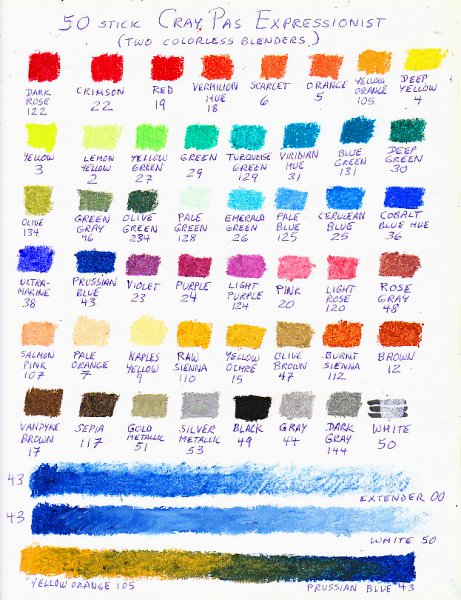 50 STICK CRAY PAS EXPRESSIONIST
(TWO COLORLESS BLENDERS)
DARK ROSE 122
CRIMSON 22
RED 19
VERMILION HUE 18
SCARLET 6
ORANGE 5
YELLOW ORANGE 105
DEEP YELLOW 4
YELLOW 3
LEMON YELLOW 2
YELLOW GREEN 27
GREEN 29
TURQUOISE GREEN 129
VIRIDIAN HUE 31
BLUE GREEN 131
DEEP GREEN 30
OLIVE 134
GREEN GRAY 46
OLIVE GREEN 234
PALE GREEN 128
EMERALD GREEN 26
PALE BLUE 125
CERULEAN BLUE 25
COBALT BLUE HUE 36
ULTRA-MARINE 38
PRUSSIAN BLUE 43
VIOLET 23
PURPLE 24
LIGHT PURPLE 124
PINK 20
LIGHT ROSE 120
ROSE GRAY 48
SALMON PINK 107
PALE ORANGE 7
NAPLES YELLOW 9
RAW SIENNA 110
YELLOW OCHRE 15
OLIVE BROWN 47
BURNT SIENNA 112
BROWN 12
VANDYKE BROWN 17
SEPIA 117
GOLD METALLIC 51
SILVER METALLIC 53
BLACK 49
GRAY 44
DARK GRAY 144
WHITE 50
43
EXTENDER 00
43
WHITE 50
YELLOW ORANGE 105
PRUSSIAN BLUE 43